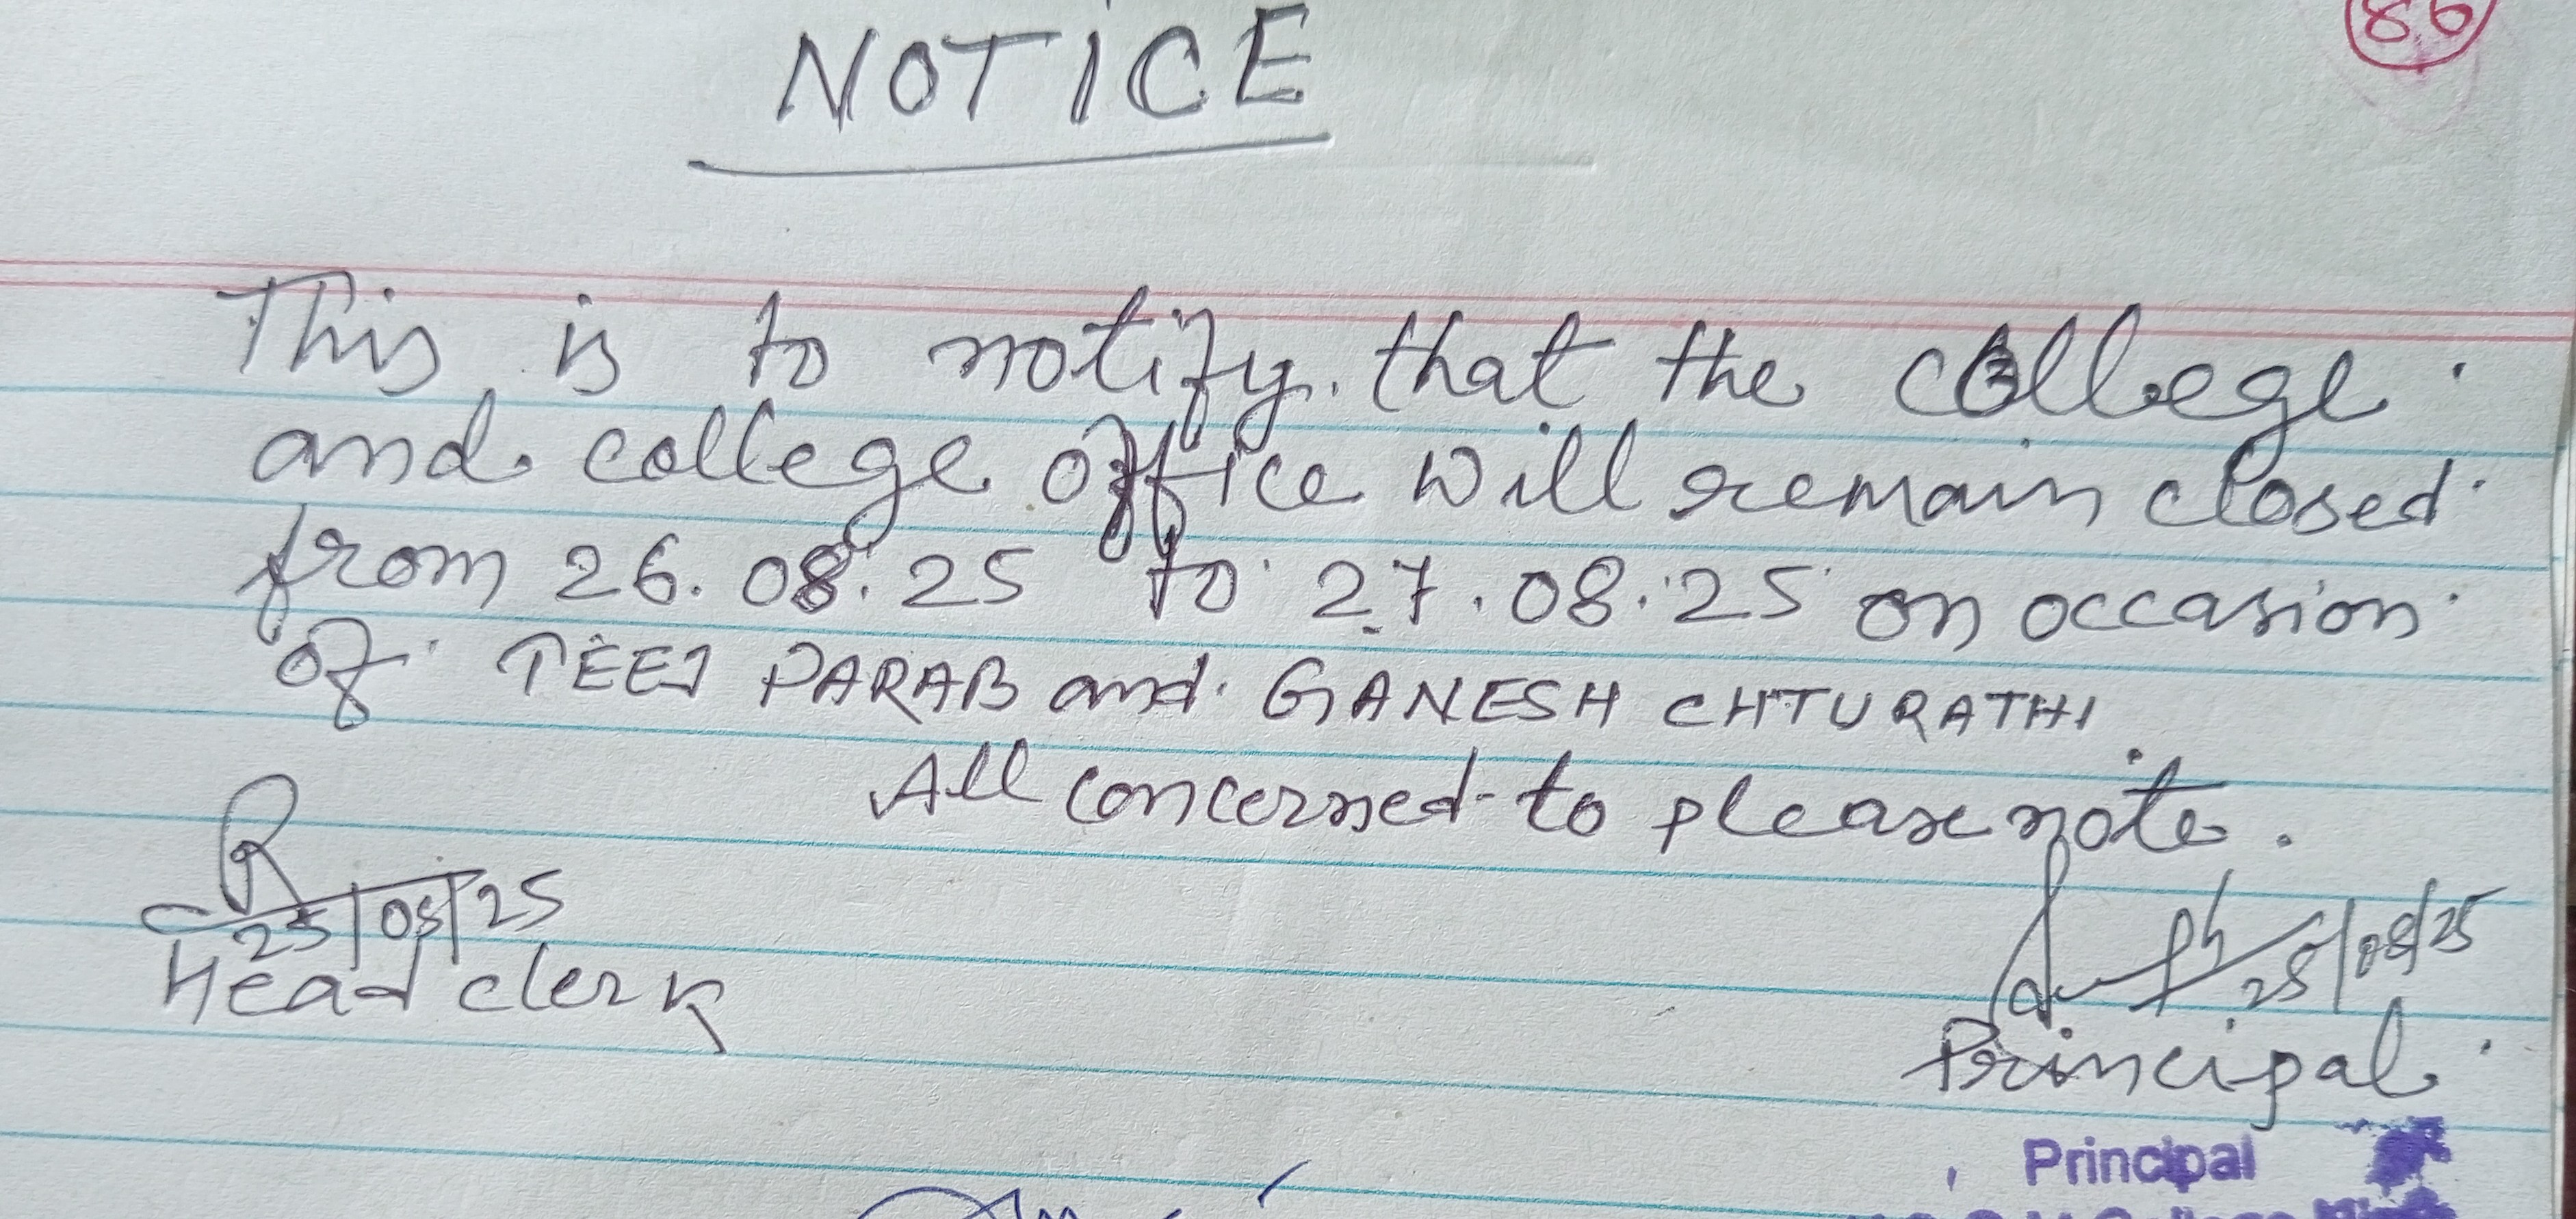 86
NOTICE
This is to notify that the college
and college office will remain closed
from 26.08.25 to 27.08.25 on occasion
of TEEJ PARAB and GANESH CHTURATHI
All concerned to please note.
25/08/25
Head clerk
25/08/25
Principal
Principal